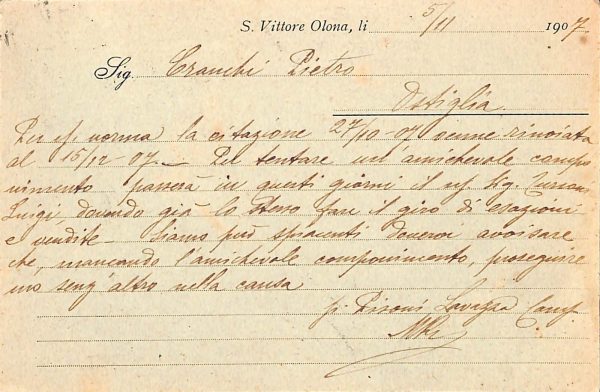 S. Vittore Olona, li 5/11 1907
Sig. Cranchi Pietro
Ostiglia
Per s/ norma la citazione 27/10-07 venne rinviata
al 15/12-07. Per tentare un'amichevole compo
nimento passerà in questi giorni il n/ Sig.
Luigi dovendo già lo stesso fare il giro di esazioni
e vendite. Siamo però spiacenti dovervi avvisare
che, mancando l'amichevole componimento, proseguire
mo senz'altro nella causa
p. Pisoni Lavazza Comp.